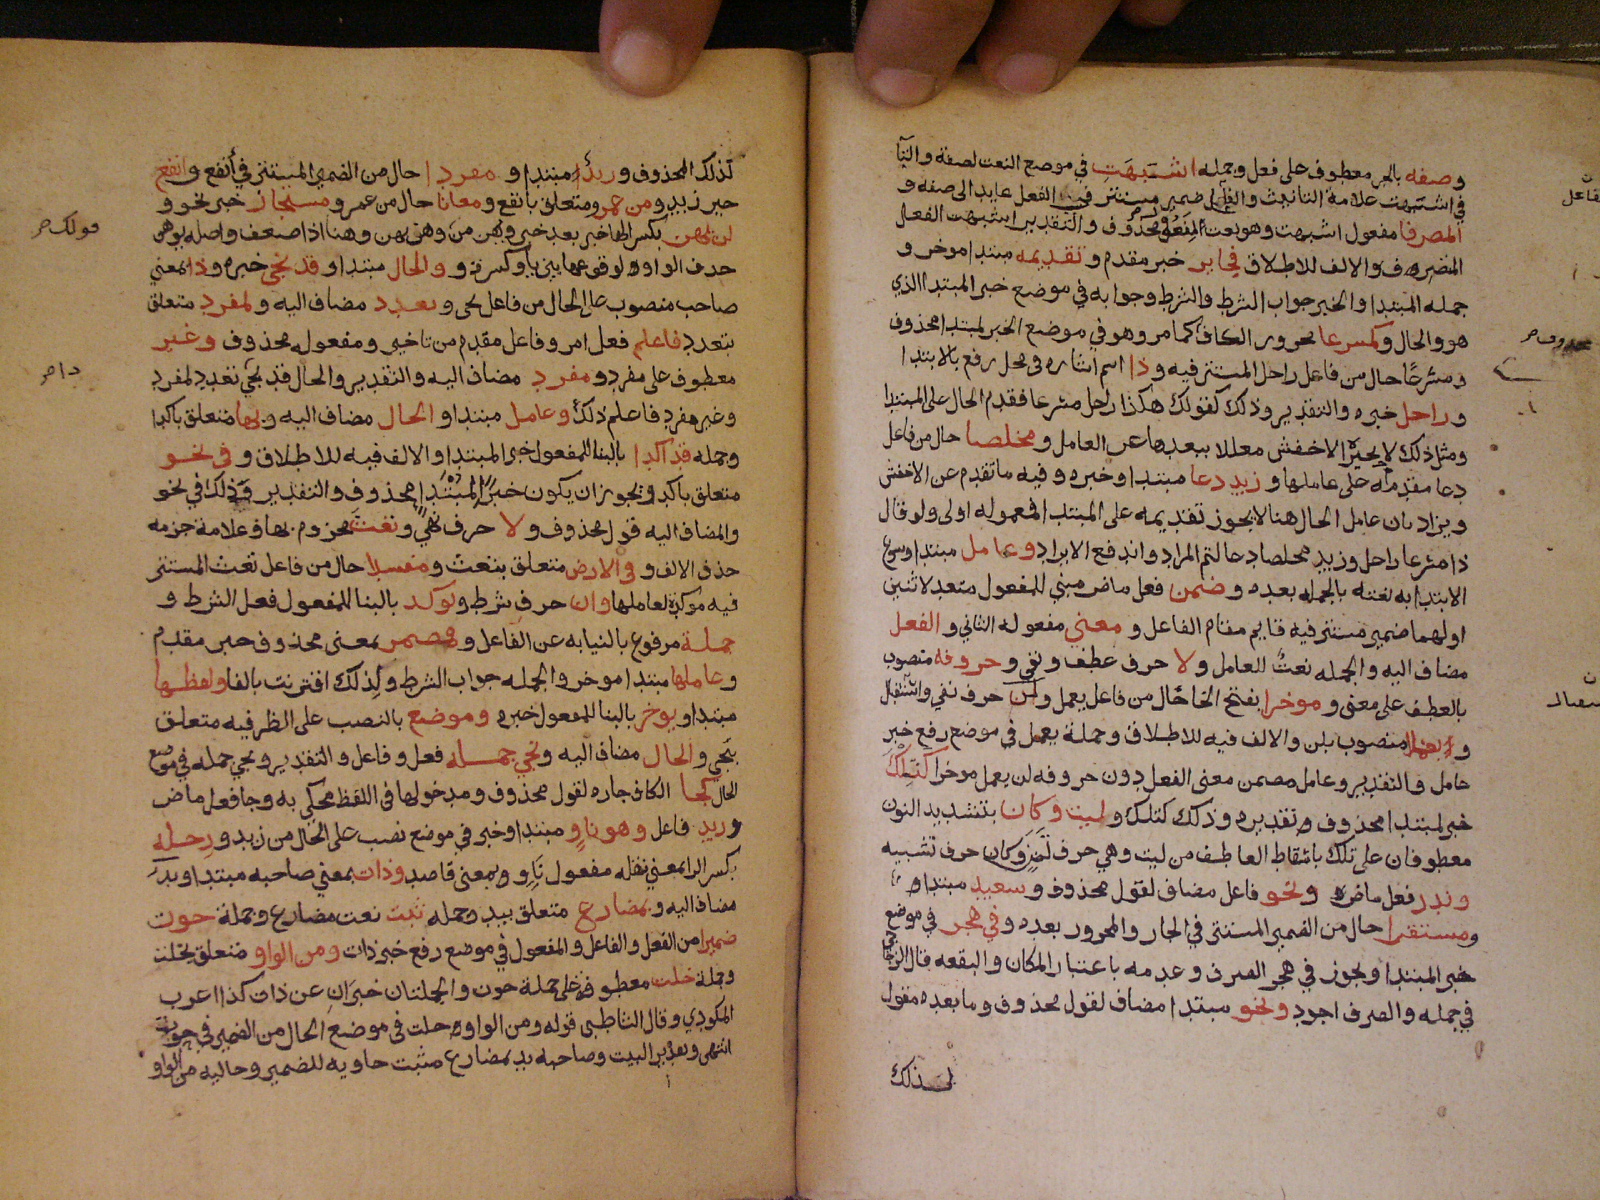 وصفه بالجر معطوف على فعل وجمله اشبهت في موضع النعت لصفة والتا
في اشبهت علامة التانيث والفاعل ضمير مستتر في الفعل عايد الى صفه و
المصرفا مفعول اشبهت وهو نعت لمنعوت محذوف والتقدير اشبهت الفعل
المصرف والالف للاطلاق فجاير خبر مقدم وتقديمه مبتدا موخر و
جمله المبتدا والخبر جواب الشرط والشرط وجوابه في موضع خبر المبتدا الذي
هو والحال وكمسرعا مجرور الكاف كما مر وهو في موضع الخبر لمبتدا محذوف
ومسرعا حال من فاعل راحل المستتر فيه وذا اسم اشاره في محل رفع بالابتدا
وراحل خبره والتقدير وذلك كقولك هكذا راحل مسرعا فقدم الحال على المبتدا
ومثل ذلك لا يجيزه الاخفش معللا ببعدها عن العامل ومخلصا حال من فاعل
دعا مقدمة على عاملها وزيد دعا مبتدا وخبره وفيه ما تقدم عن الاخفش
ويزاد بان عامل الحال هنا لا يجوز تقديمه على المبتدا فمعموله اولى ولو قال
ذا مسرعا راحل وزيد مخلصا دعا لتم المراد واندفع الايراد وعامل مبتدا وسوغ
الابتدا به نعته بالجمله بعده وضمن فعل ماض مبني للمفعول متعد لاثنين
اولهما ضمير مستتر فيه قايم مقام الفاعل ومعنى مفعوله الثاني والفعل
مضاف اليه والجمله نعت للعامل ولا حرف عطف ونفي وحروفه منصوب
بالعطف على معنى وموخرا بفتح الخا حال من فاعل يعمل ولن حرف نفي واستقبال
ويعملا منصوب بلن والالف فيه للاطلاق وجملة يعمل في موضع رفع خبر
عامل والتقدير وعامل مضمن معنى الفعل دون حروفه لن يعمل موخرا كتلك
خبر لمبتدا محذوف وتقديره وذلك كتلك وليت وكان بتشديد النون
معطوفان على تلك باسقاط العاطف من ليت وهي حرف تمن وكان حرف تشبيه
وندر فعل ماض ونحو فاعل مضاف لقول محذوف وسعيد مبتدا و
ومستقرا حال من الضمير المستتر في الجار والمجرور بعده وفي هجر في موضع
خبر المبتدا ويجوز في هجر الصرف وعدمه باعتبار المكان والبقعه قال الزجاجي
في جمله والصرف اجود ونحو مبتدا مضاف لقول محذوف وما بعده مقول
لذلك
لذلك المحذوف وزيد مبتدا ومفردا حال من الضمير المستتر في أنفع وانفع
خبر زيد ومن عمرو متعلق بانفع ومعانا حال من عمرو ومستجاز خبر نحو و
لن يهن بكسر الها خبر بعد خبر ويهن من وهن يهن وهنا اذا ضعف واصله يوهن
حذف الواو لوقوعها بين يا وكسرة والحال مبتدا وقد يجي خبره وذا بمعنى
صاحب منصوب على الحال من فاعل يجي وتعدد مضاف اليه ولمفرد متعلق
بتعدد فاعلم فعل امر وفاعل مقدم من تاخير ومفعوله محذوف وغير
معطوف على مفرد ومفرد مضاف اليه والتقدير والحال قد يجي تعدد لمفرد
وغير مفرد فاعلم ذلك وعامل مبتدا والحال مضاف اليه وبها متعلق باكدا
وجمله قد اكدا بالبنا للمفعول خبر المبتدا والالف فيه للاطلاق وفي نحو
متعلق باكد ويجوز ان يكون خبر المبتدا محذوف والتقدير وذلك في نحو
والمضاف اليه قول محذوف ولا حرف نهي وتعث مجزوم بها وعلامة جزمه
حذف الالف وفي الارض متعلق بتعث ومفسدا حال من فاعل تعث المستتر
فيه موكدة لعاملها وان حرف شرط وتوكد بالبنا للمفعول فعل الشرط و
جملة مرفوع بالنيابه عن الفاعل فمضمر بمعنى محذوف خبر مقدم
وعاملها مبتدا موخر والجمله جواب الشرط ولذلك اقترنت بالفا ولفظها
مبتدا ويوخر بالبنا للمفعول خبره وموضع بالنصب على الظرفيه متعلق
بتجي والحال مضاف اليه وتجي جمله فعل وفاعل والتقدير وتجي جمله في موضع
الحال كجا الكاف جاره لقول محذوف ومدخولها في اللفظ محكي به وجا فعل ماض
وزيد فاعل وهو ناو مبتدا وخبر في موضع نصب على الحال من زيد ورحله
بكسر الرا بمعنى نقله مفعول ناو وبمعنى قاصد وذات بمعنى صاحبه مبتدا وبدء
مضاف اليه وبمضارع متعلق ببدء وجمله ثبت نعت مضارع وجملة حوت
ضميرا من الفعل والفاعل والمفعول في موضع رفع خبر ذات ومن الواو متعلق بخلت
وجملة خلت معطوفة على جملة حوت والجملتان خبران عن ذات كذا اعرب
المكودي وقال الشاطبي قوله ومن الواو خلت في موضع الحال من الضمير في حوت
انتهى وتقدير البيت وصاحبه بدء بمضارع مثبت حاويه للضمير وخاليه من الواو
قولك صح
ذا صح
محذوف صح